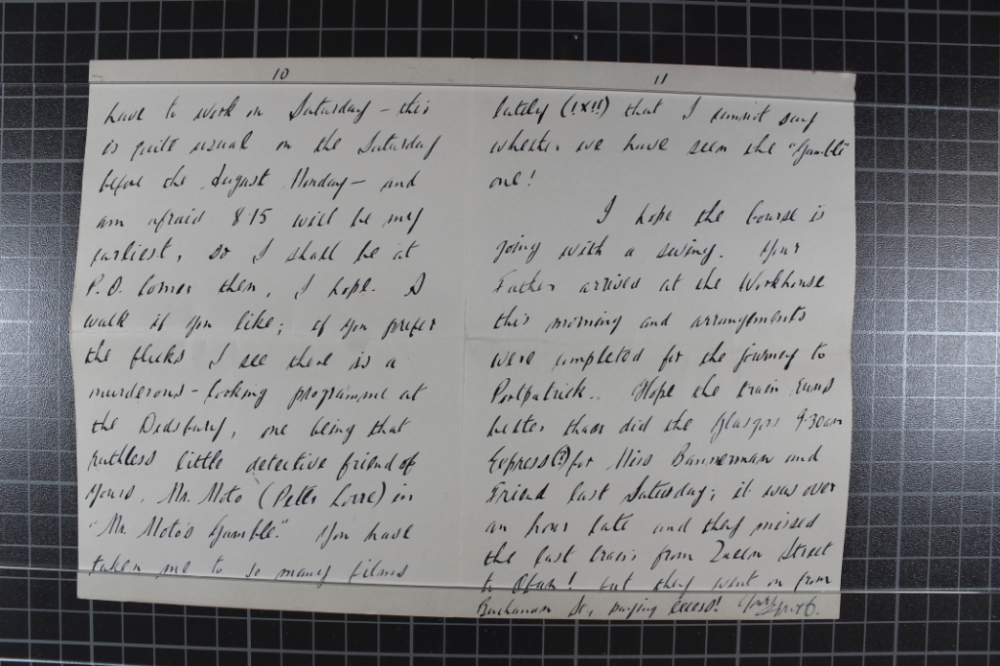 10
have to work on Saturday – this
is quite usual on the Saturday
before the August Monday – and
am afraid 8.15 will be my
earliest, so I shall be at
P.O. Corner then, I hope. A
walk if you like; if you prefer
the flicks I see there is a
murderous-looking programme at
the Didsbury, one being that
ruthless little detective friend of
yours, Mr. Moto (Peter Lorre) in
"Mr. Moto's Gamble". You have
taken me to so many films
11
lately (!X!!) that I cannot say
whether we have seen the "Gamble"
one!
I hope the Course is
going with a swing. Your
Father arrived at the Workhouse
this morning and arrangements
were completed for the journey to
Portpatrick.. Hope the train runs
better than did the Glasgow 9.30am
Express(?) for Miss Bannerman and
Friend last Saturday; it was over
an hour late and they missed
the last train from Queen Street
to Oban! but they went on from
Buchanan St, paying excess! Yours